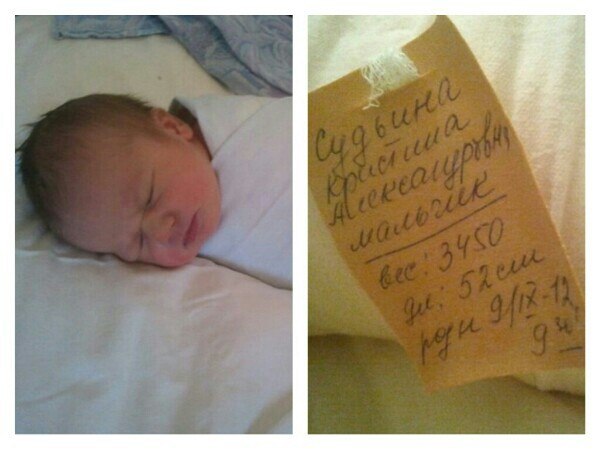 Судьина
Кристина
Александровна
мальчик
вес: 3450
дл: 52см
родн 9/IX-12
9 ч